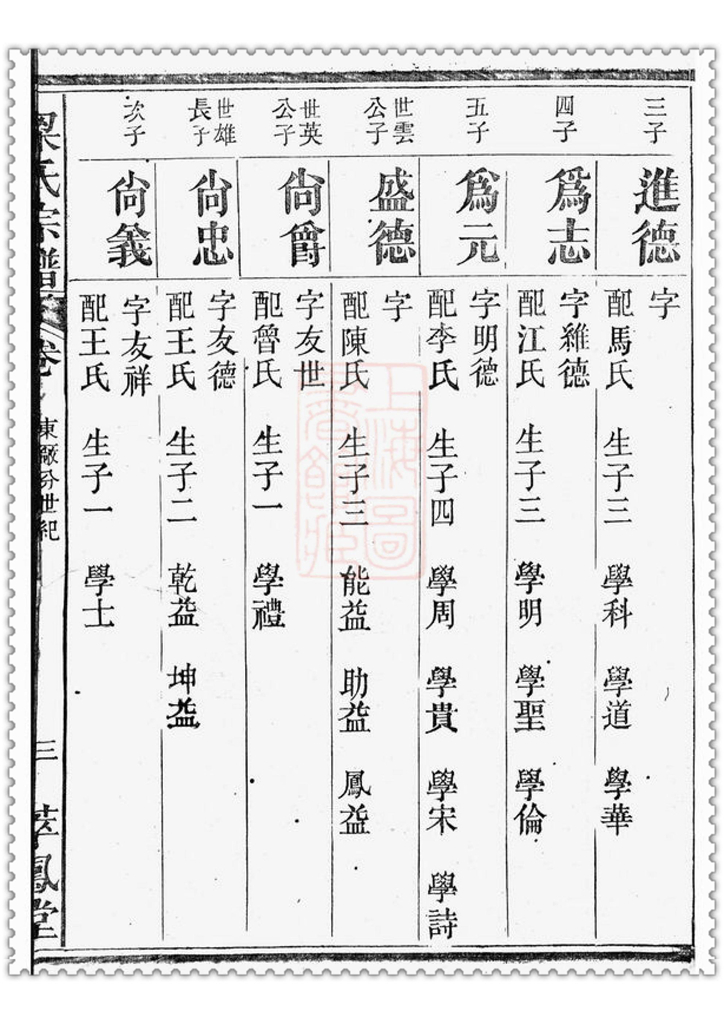 三子
進德
字
配馬氏 生子三 學科 學道 學華
四子
爲志
字維德
配江氏 生子三 學明 學聖 學倫
五子
爲元
字明德
配李氏 生子四 學周 學貴 學宋 學詩
世雲
公子
盛德
字
配陳氏 生子三 能益 助益 鳳益
世英
公子
尙爵
字友世
配曾氏 生子一 學禮
世雄
長子
尙忠
字友德
配王氏 生子二 乾益 坤益
次子
尙義
字友祥
配王氏 生子一 學士
梁氏宗譜
卷
東廠分世紀
三
鳳堂
上海圖
書館藏